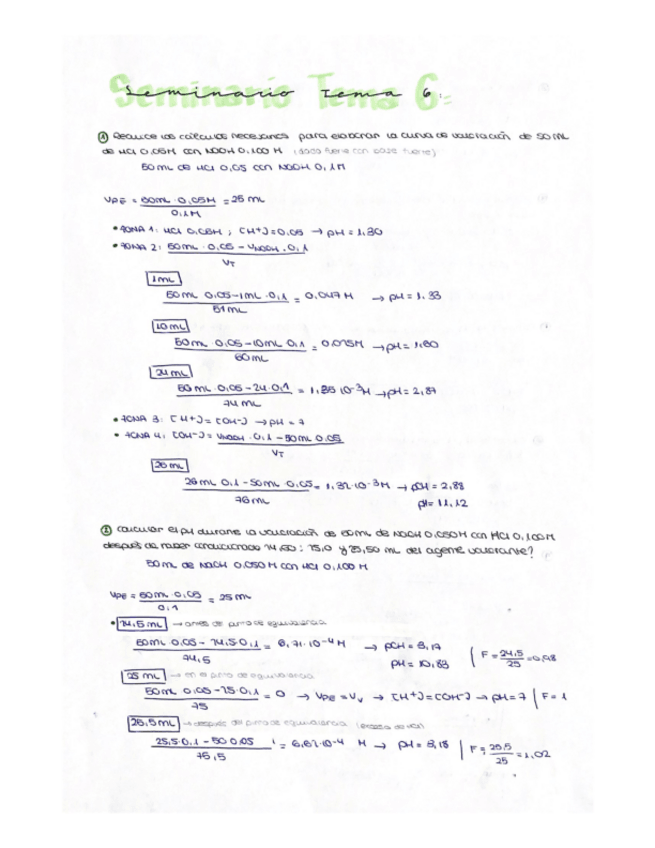 Seminario Tema 6:
① Realice los cálculos necesarios para elaborar la curva de valoración de 50 mL
de HCl 0,05M con NaOH 0,100 M (ácido fuerte con base fuerte)
50 mL de HCl 0,05 con NaOH 0,1M
VPE = 50mL · 0,05M / 0,1M = 25 mL
• ZONA 1: HCl 0,05M ; [H+]=0,05 → pH = 1,30
• ZONA 2: 50mL · 0,05 - VNaOH · 0,1 / VT
1mL
50 mL 0,05-1mL · 0,1 / 51mL = 0,047 M → pH = 1.33
10mL
50mL · 0,05-10mL 0,1 / 60mL = 0,025M → pH = 1,60
24mL
50 mL · 0,05-24 · 0,1 / 74 mL = 1,35 10⁻³M → pH = 2,87
• ZONA 3: [H+] = [OH-] → pH = 7
• ZONA 4: [OH-] = VNaOH · 0,1 - 50mL 0,05 / VT
26mL
26mL 0,1 - 50mL · 0,05 / 76mL = 1,32·10⁻³M → pOH = 2,88
pH = 11,12
② Calcular el pH durante la valoración de 50mL de NaOH 0,050M con HCl 0,100M
después de haber adicionado 24,50; 25,0 y 25,50 mL del agente valorante?
50 mL de NaOH 0,050 M con HCl 0,100 M
VPE = 50mL · 0,05 / 0,1 = 25mL
• 24,5 mL → antes de punto de equivalencia
50mL 0,05 - 24,5·0,1 / 74,5 = 6,71·10⁻⁴ M → pOH = 3,17
pH = 10,83 | F = 24,5 / 25 = 0,98
25 mL → en el punto de equivalencia
50mL 0,05-25·0,1 / 75 = 0 → VPE = Vv → [H+]=[OH-] → pH=7 | F = 1
25,5mL → después del punto de equivalencia (exceso de HCl)
25,5·0,1 - 50 0,05 / 75,5 = 6,62·10⁻⁴ M → pH = 3,18 | F = 25,5 / 25 = 1,02